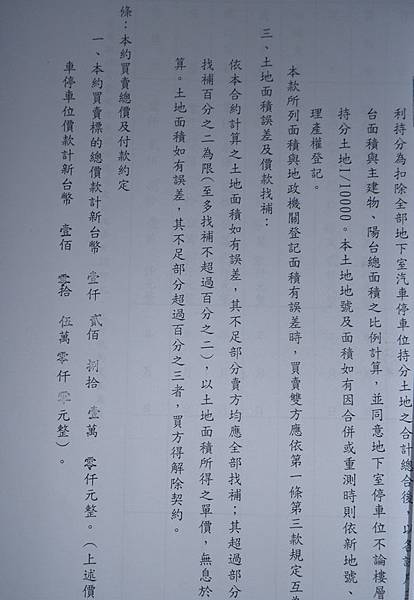 利持分為扣除全部地下室汽車停車位持分土地之合計總合後，以各計
台面積與主建物、陽台總面積之比例計算，並同意地下室停車位不論樓層
持分土地1/10000。本土地地號及面積如有因合併或重測時則依新地號、
理產權登記。
本款所列面積與地政機關登記面積有誤差時，買賣雙方應依第一條第三款規定互為
三、土地面積誤差及價款找補：
依本合約計算之土地面積如有誤差，其不足部分賣方均應全部找補；其超過部分
找補百分之二為限（至多找補不超過百分之二），以土地面積所得之單價，無息於
算。土地面積如有誤差，其不足部分超過百分之三者，買方得解除契約。
條：本約買賣總價及付款約定
一、本約買賣標的總價款計新台幣 壹仟 貳佰 捌拾 壹萬 零仟元整。（上述價
車停車位價款計新台幣 壹佰 零拾 伍萬零仟零元整）。